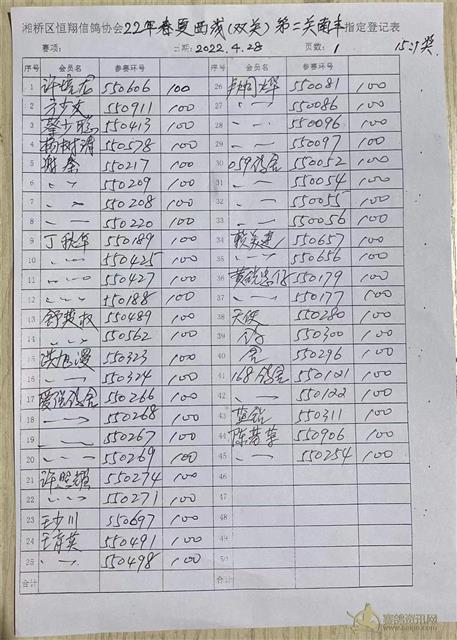 湘桥区恒翔信鸽协会22年春夏西线(双关)第二关南丰指定登记表
赛项: 日期: 2022.4.28 页数: 1 15:1奖
序号 会员名 参赛环号 序号 会员名 参赛环号
1 许培龙 550606 100 26 550081 100
2 550911 100 27 〃 550086 100
3 蔡少聪 550413 100 28 〃 550096 100
4 杨树清 550578 100 29 〃 550097 100
5 谢泰 550217 100 30 059鸽舍 550052 100
6 〃 550209 100 31 〃 550054 100
7 〃 550208 100 32 〃 550055 100
8 〃 550220 100 33 〃 550056 100
9 丁秋年 550189 100 34 550657 100
10 〃 550425 100 35 〃 550656 100
11 〃 550427 100 36 550179 100
12 〃 550188 100 37 〃 550177 100
13 舒英权 550489 100 38 天使 550280 100
14 〃 550562 100 39 550300 100
15 洪旭漫 550323 100 40 舍 550296 100
16 〃 550324 100 41 168鸽舍 550121 100
17 爱悦鸽舍 550266 100 42 〃 550122 100
18 〃 550268 100 43 蓝钻 550311 100
19 〃 550267 100 44 陈若苹 550906 100
20 〃 550269 100 45 〃 550254 100
21 许照耀 550274 100 46
22 〃 550271 100 47
23 王少川 550697 100 48
24 王育英 550491 100 49
25 〃 550498 100 50
合计 合计
赛鸽资讯网
www.saige.com